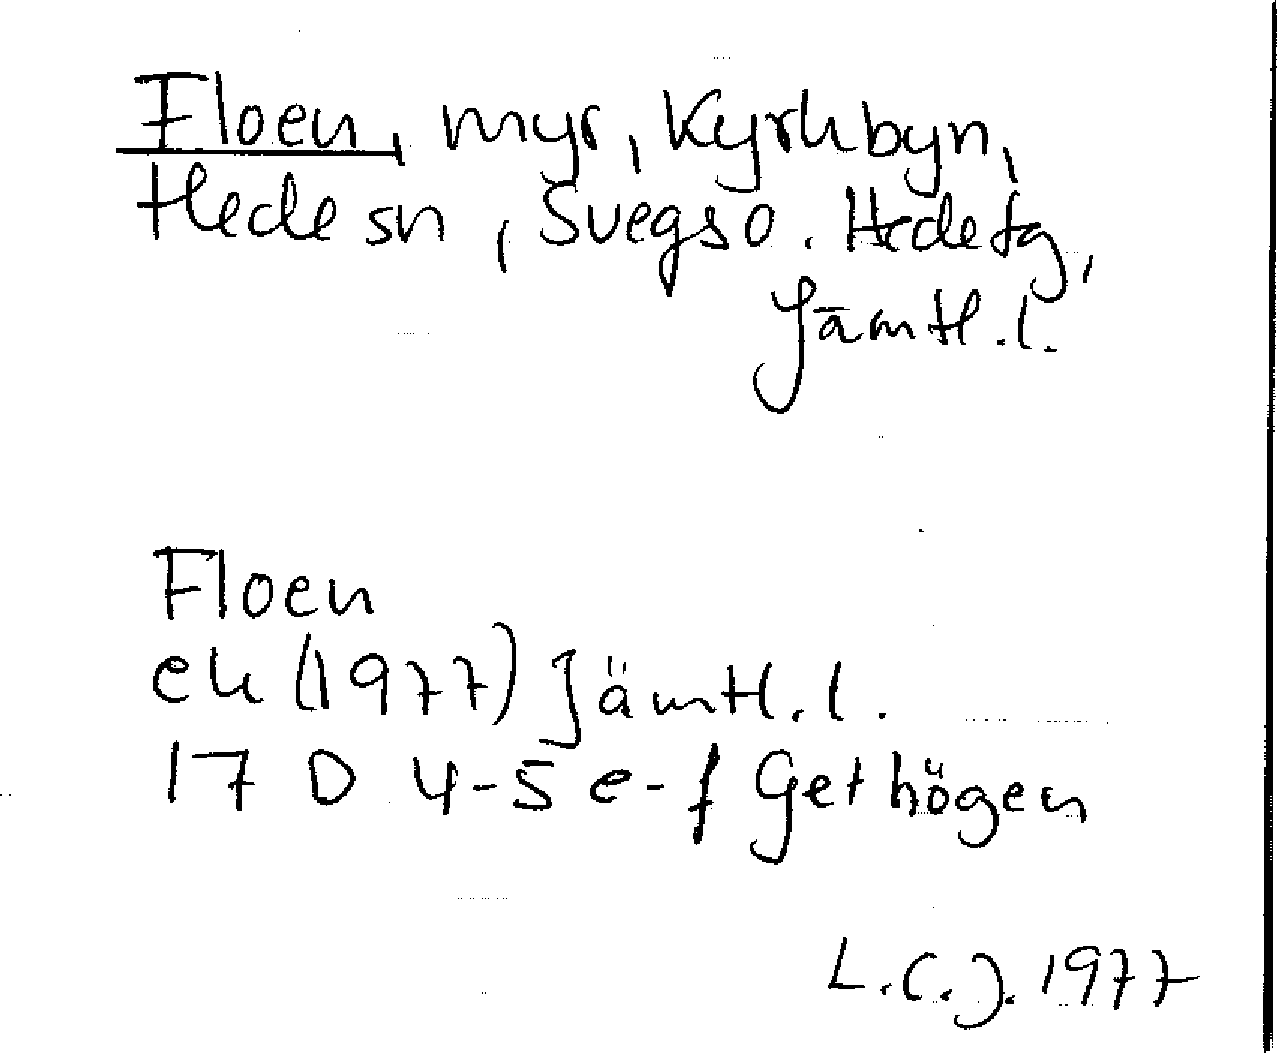 Floen, myr, Kyrkbyn,
Hede sn, Svegs o. Hede tg,
Jämtl. l.
Floen
ek (1977) Jämtl. l.
17 D 4-5 e-f Gethögen
L.C.J. 1977